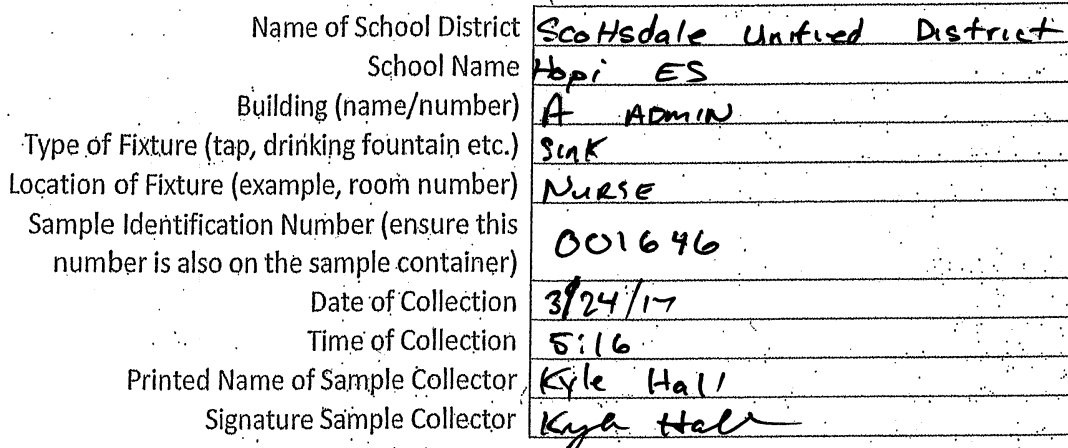 Name of School District Scottsdale Unified District
School Name Hopi ES
Building (name/number) A ADMIN
Type of Fixture (tap, drinking fountain etc.) Sink
Location of Fixture (example, room number) NURSE
Sample Identification Number (ensure this
number is also on the sample container) 001646
Date of Collection 3/24/17
Time of Collection 5:16
Printed Name of Sample Collector Kyle Hall
Signature Sample Collector Kyle Hall